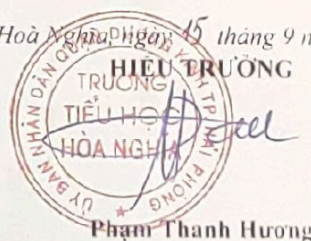 Hoà Nghĩa, ngày 15 tháng 9 n
HIỆU TRƯỞNG
ỦY BAN NHÂN DÂN QUẬN DƯƠNG KINH TP HẢI PHÒNG
TRƯỜNG
TIỂU HỌC
HÒA NGHĨA
Phạm Thanh Hương